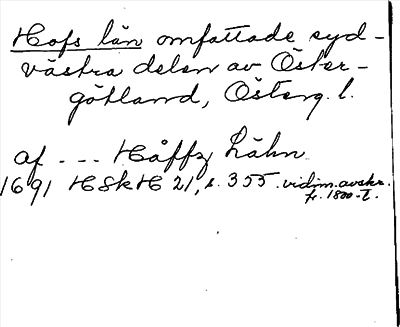 Hofs län omfattade syd-
västra delen av Öster-
götland, Österg. l.
af --- Håffz Lähn
1691 HSkH 21, s. 355. vidim. avskr.
fr. 1800-t.